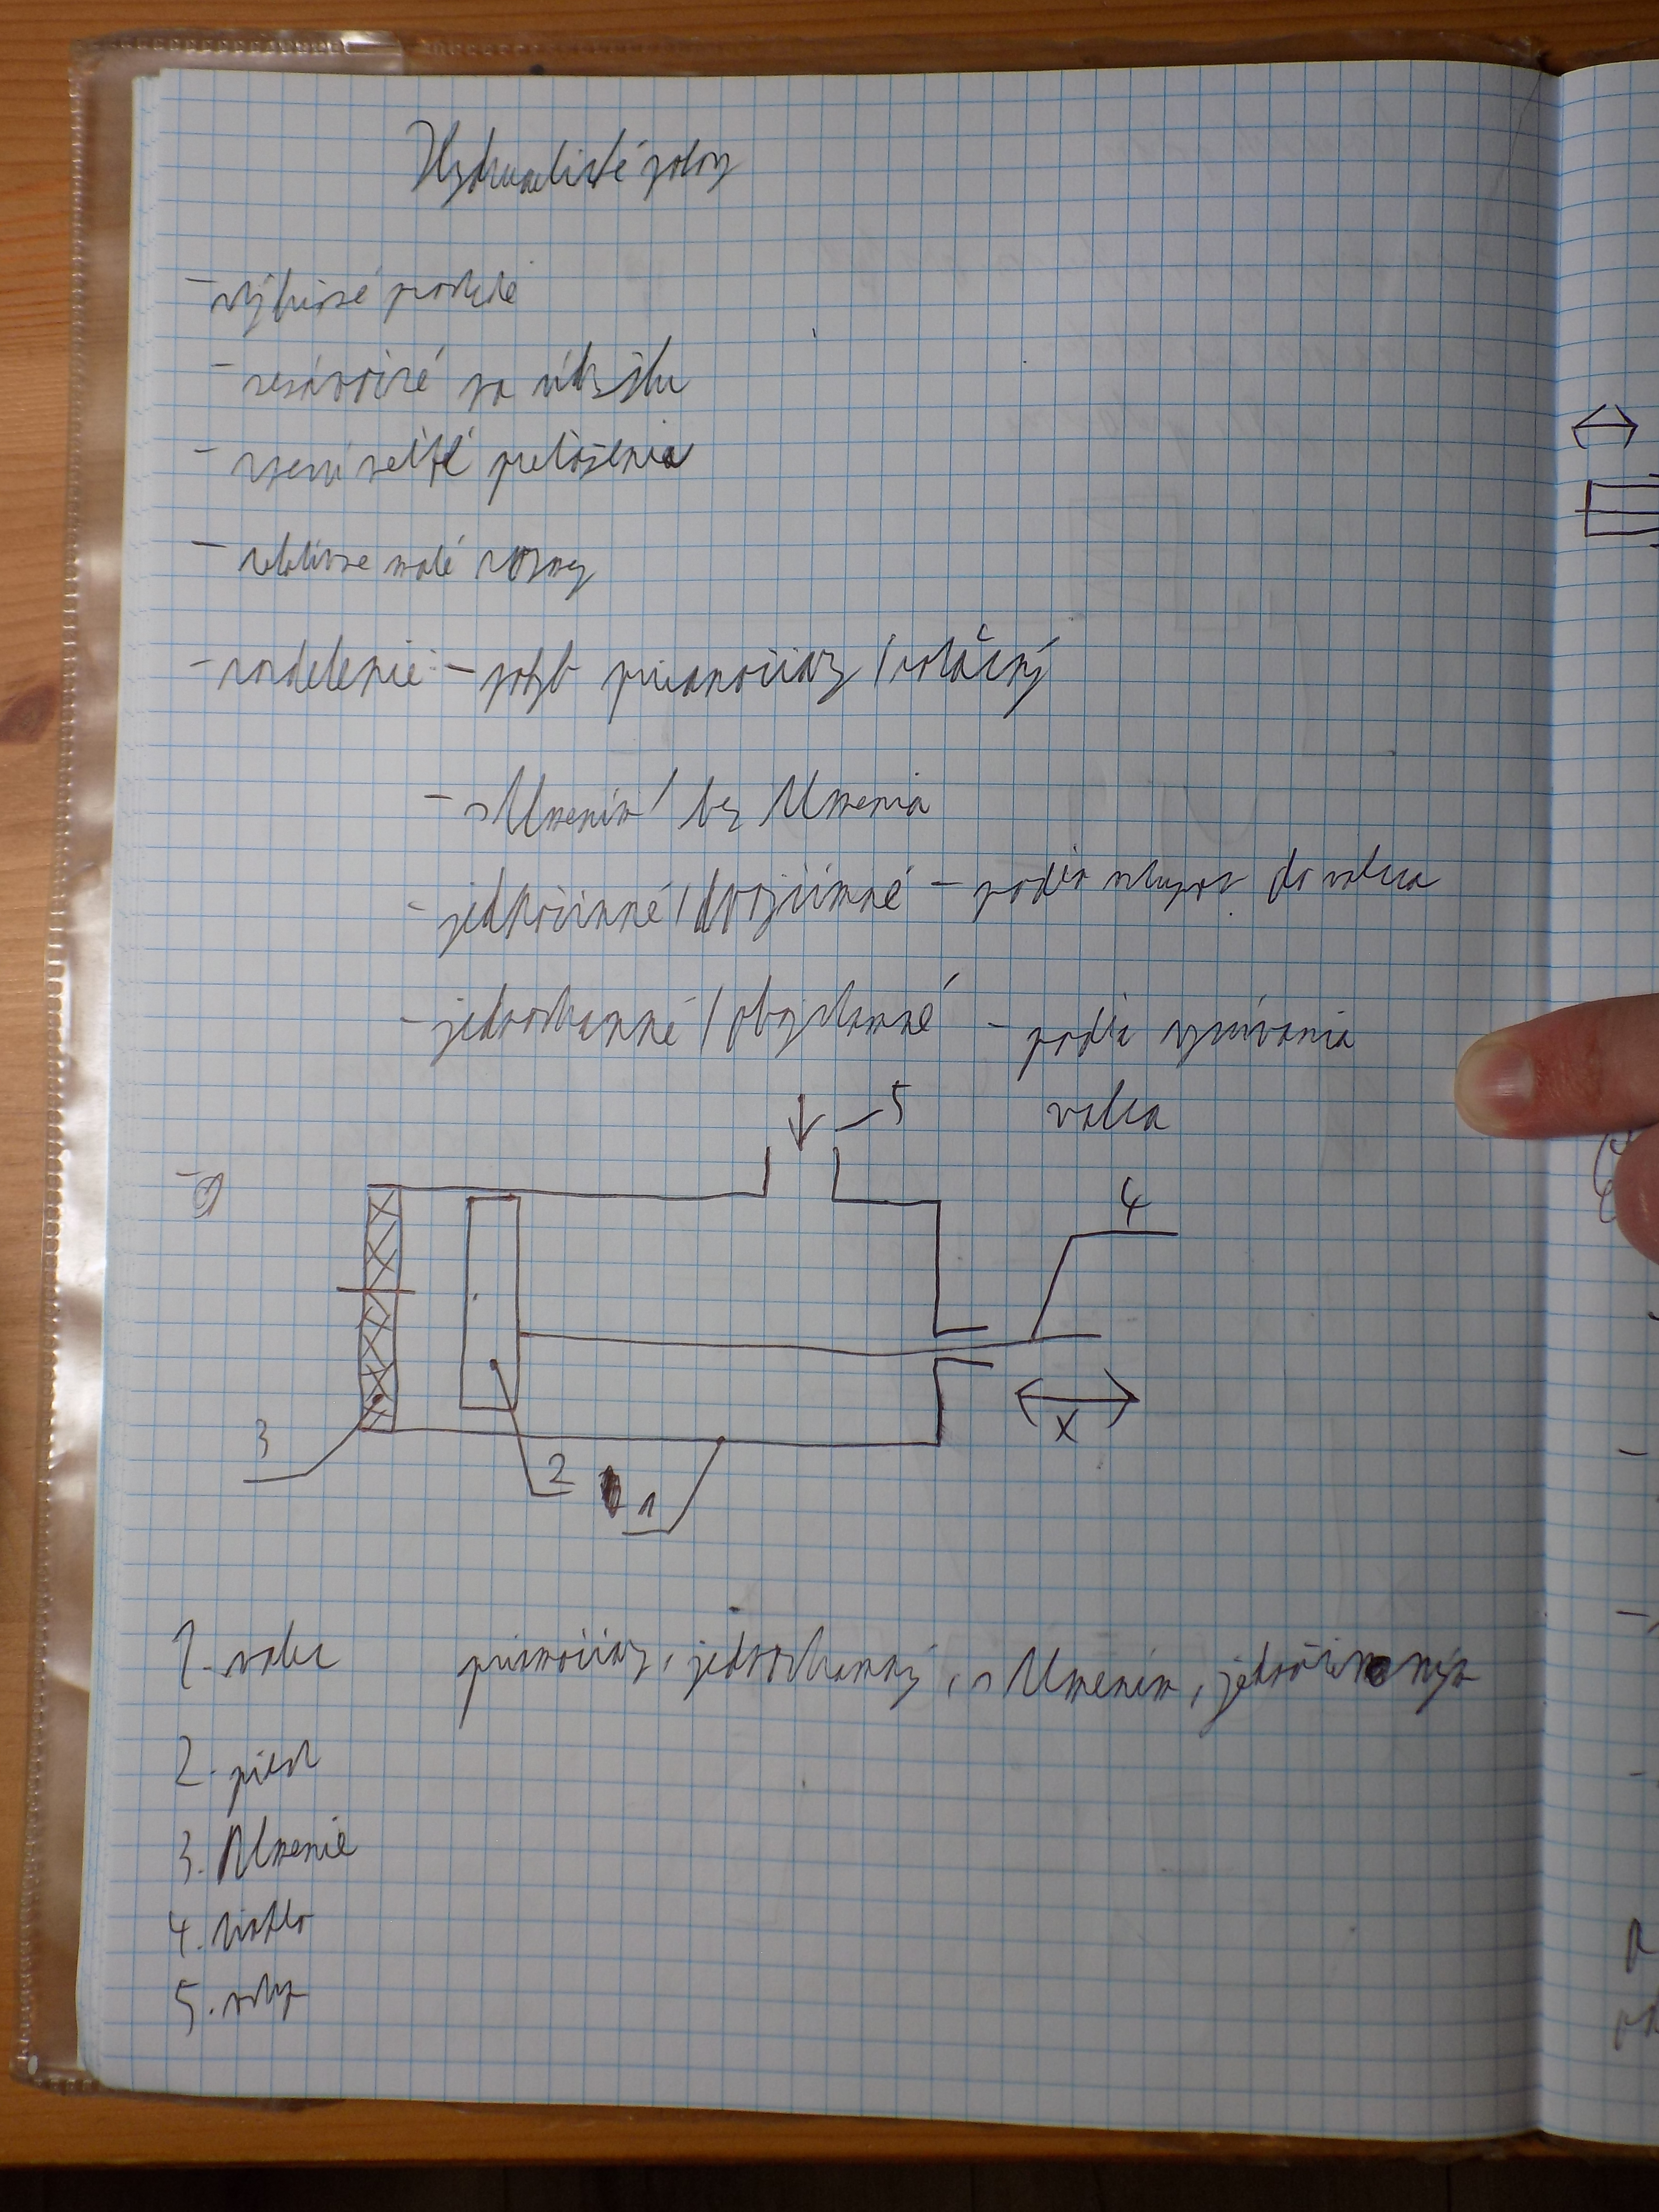 Hydraulické pohony
- výbušné prostredie
- nenáročné na údržbu
- preťaženia
- relatívne malé rozmery
- rozdelenie: - pohyb priamočiary / rotačný
- s tlmením / bez tlmenia
- jednočinné / dvojčinné - podľa vstupov do valca
- jednostranné / obojstranné - podľa využívania
valca
5
4
X
3
2
1
1. valec priamočiary, jednostranný, s tlmením, jednočinným
2. piest
3. tlmenie
4. tiahlo
5. vstup